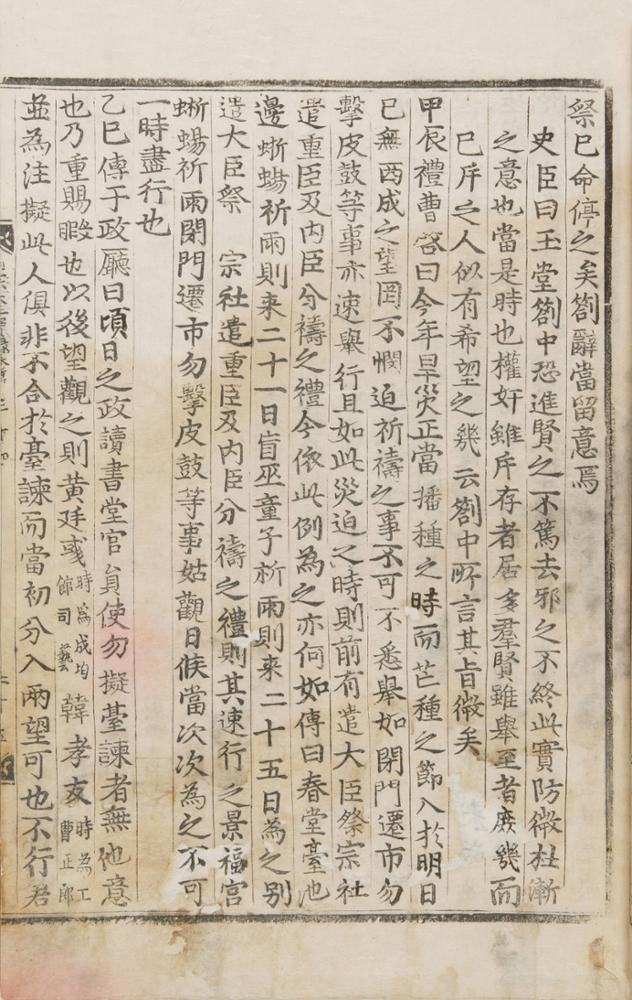 祭已命停之矣箚辭當留意焉
史臣曰玉堂箚中恐進賢之不篤去邪之不終此實防微杜漸
之意也當是時也權奸雖斥存者居多羣賢雖擧至者廢幾而
已斥之人似有希望之幾云箚中所言其旨微矣
甲辰禮曹啓曰今年旱灾正當播種之時而芒種之節入於明日
已無西成之望罔不憫迫祈禱之事不可不悉擧如閉門遷市勿
擊皮鼓等事亦速擧行且如此災迫之時則前有遣大臣祭宗社
遣重臣及内臣分禱之禮今依此例爲之亦何如傳曰春堂臺池
邊蜥蜴祈雨則来二十一日盲巫童子祈雨則来二十五日爲之別
遣大臣祭 宗社遣重臣及内臣分禱之禮則其速行之景福宮
蜥蜴祈雨閉門遷市勿擊皮鼓等事姑觀日候當次次爲之不可
一時盡行也
乙巳傳于政廳曰頃日之政讀書堂官員使勿擬臺諫者無他意
也乃重賜暇也以後望觀之則黄廷彧時爲成均館司藝韓孝友時爲工曹正郎
並爲注擬此人俱非不合於臺諫而當初分入兩望可也不行君